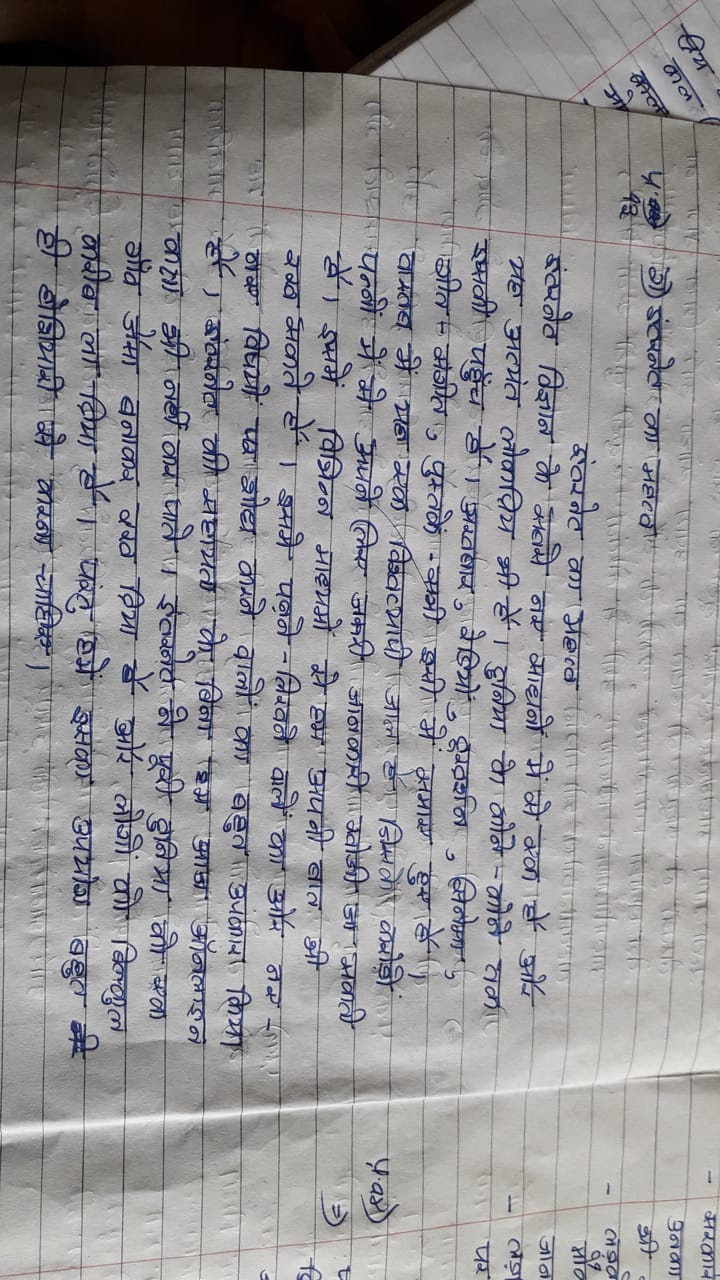 प्र 12) ग) इंटरनेट का महत्व
इंटरनेट का महत्व
इंटरनेट विज्ञान के सबसे नए साधनों में से एक है और
यह अत्यंत लोकप्रिय भी है। दुनिया के कोने-कोने तक
इसकी पहुँच है। अखबार, रेडियो, दूरदर्शन, सिनेमा,
गीत-संगीत, पुस्तकें - सभी इसी में समाए हुए हैं।
वास्तव में यह एक विश्वव्यापी जाल है जिसके करोड़ों
पृष्ठों में से अपने लिए जरूरी जानकारी खोजी जा सकती
है। इसमें विभिन्न माध्यमों से हम अपनी बात भी
रख सकते हैं। इसने पढ़ने-लिखने वालों का और नए-
नए विषयों पर शोध करने वालों का बहुत उपकार किया
है। इंटरनेट की सहायता के बिना हम आज ऑनलाइन
कक्षा भी नहीं कर पाते। इंटरनेट ने पूरी दुनिया को एक
गाँव जैसा बनाकर रख दिया है और लोगों को बिल्कुल
करीब ला दिया है। परंतु हमें इसका उपयोग बहुत
ही होशियारी से करना चाहिए।